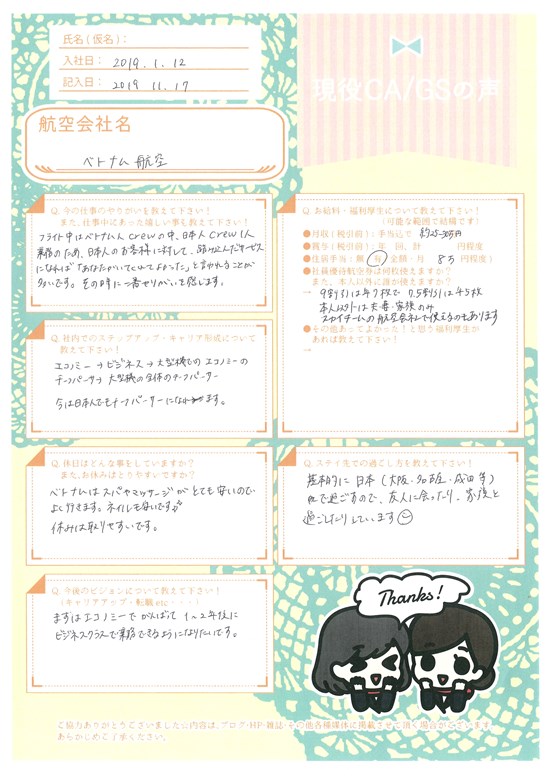 氏名(仮名):
入社日: 2019. 1. 12
記入日: 2019 11. 17
現役CA/GSの声
航空会社名
ベトナム航空
Q. 今の仕事のやりがいを教えて下さい！
また、仕事中にあった嬉しい事も教えて下さい！
フライト中はベトナム人Crewの中、日本人Crew1人
業務のため、日本人のお客様に対して、踏み込んだサービス
になれば「あなたがいてくれてよかった」と言われることが
多いです。その時に一番やりがいを感じます。
Q. 社内でのステップアップ・キャリア形成について
教えて下さい！
エコノミー→ビジネス→大型機でのエコノミーの
チーフパーサー→大型機の全体のチーフパーサー
今は日本人でもチーフパーサーになれます。
Q. 休日はどんな事をしていますか？
また、お休みはとりやすいですか？
ベトナムはスパやマッサージがとても安いので
よく行きます。ネイルも安いです
休みは取りやすいです。
Q. 今後のビジョンについて教えて下さい！
（キャリアアップ・転職 etc・・・）
まずはエコノミーでがんばって 1〜2年後に
ビジネスクラスで業務できるようになりたいです。
Q. お給料・福利厚生について教えて下さい！
（可能な範囲で結構です）
●月収（税引前）: 手当込で 約25-30万円
●賞与（税引前）: 年 回、計 万円程度
●住居手当: 無 有 金額・月 8万 円程度）
●社員優待航空券は何枚使えますか？
また、本人以外に誰が使えますか？
→ 9割引は年7枚で 7.5割引は45枚
本人以外は夫妻・家族のみ
スカイチームの航空会社で使えるのもあります
●その他あってよかった！と思う福利厚生が
あれば教えて下さい！
→
Q. ステイ先での過ごし方を教えて下さい！
基本的に日本（大阪・名古屋・成田等）
内で過ごすので、友人に会ったり、家族と
過ごしたりしています
Thanks!
ご協力ありがとうございました☆内容は、ブログ・HP・雑誌・その他各種媒体に掲載させて頂く場合がございます。
あらかじめご了承ください。